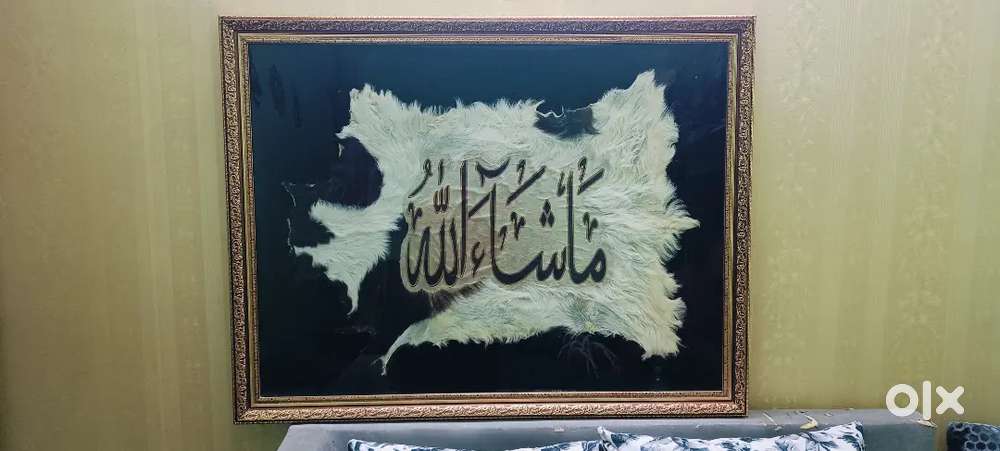 مَا شَاءَ اللّٰهُ
olx